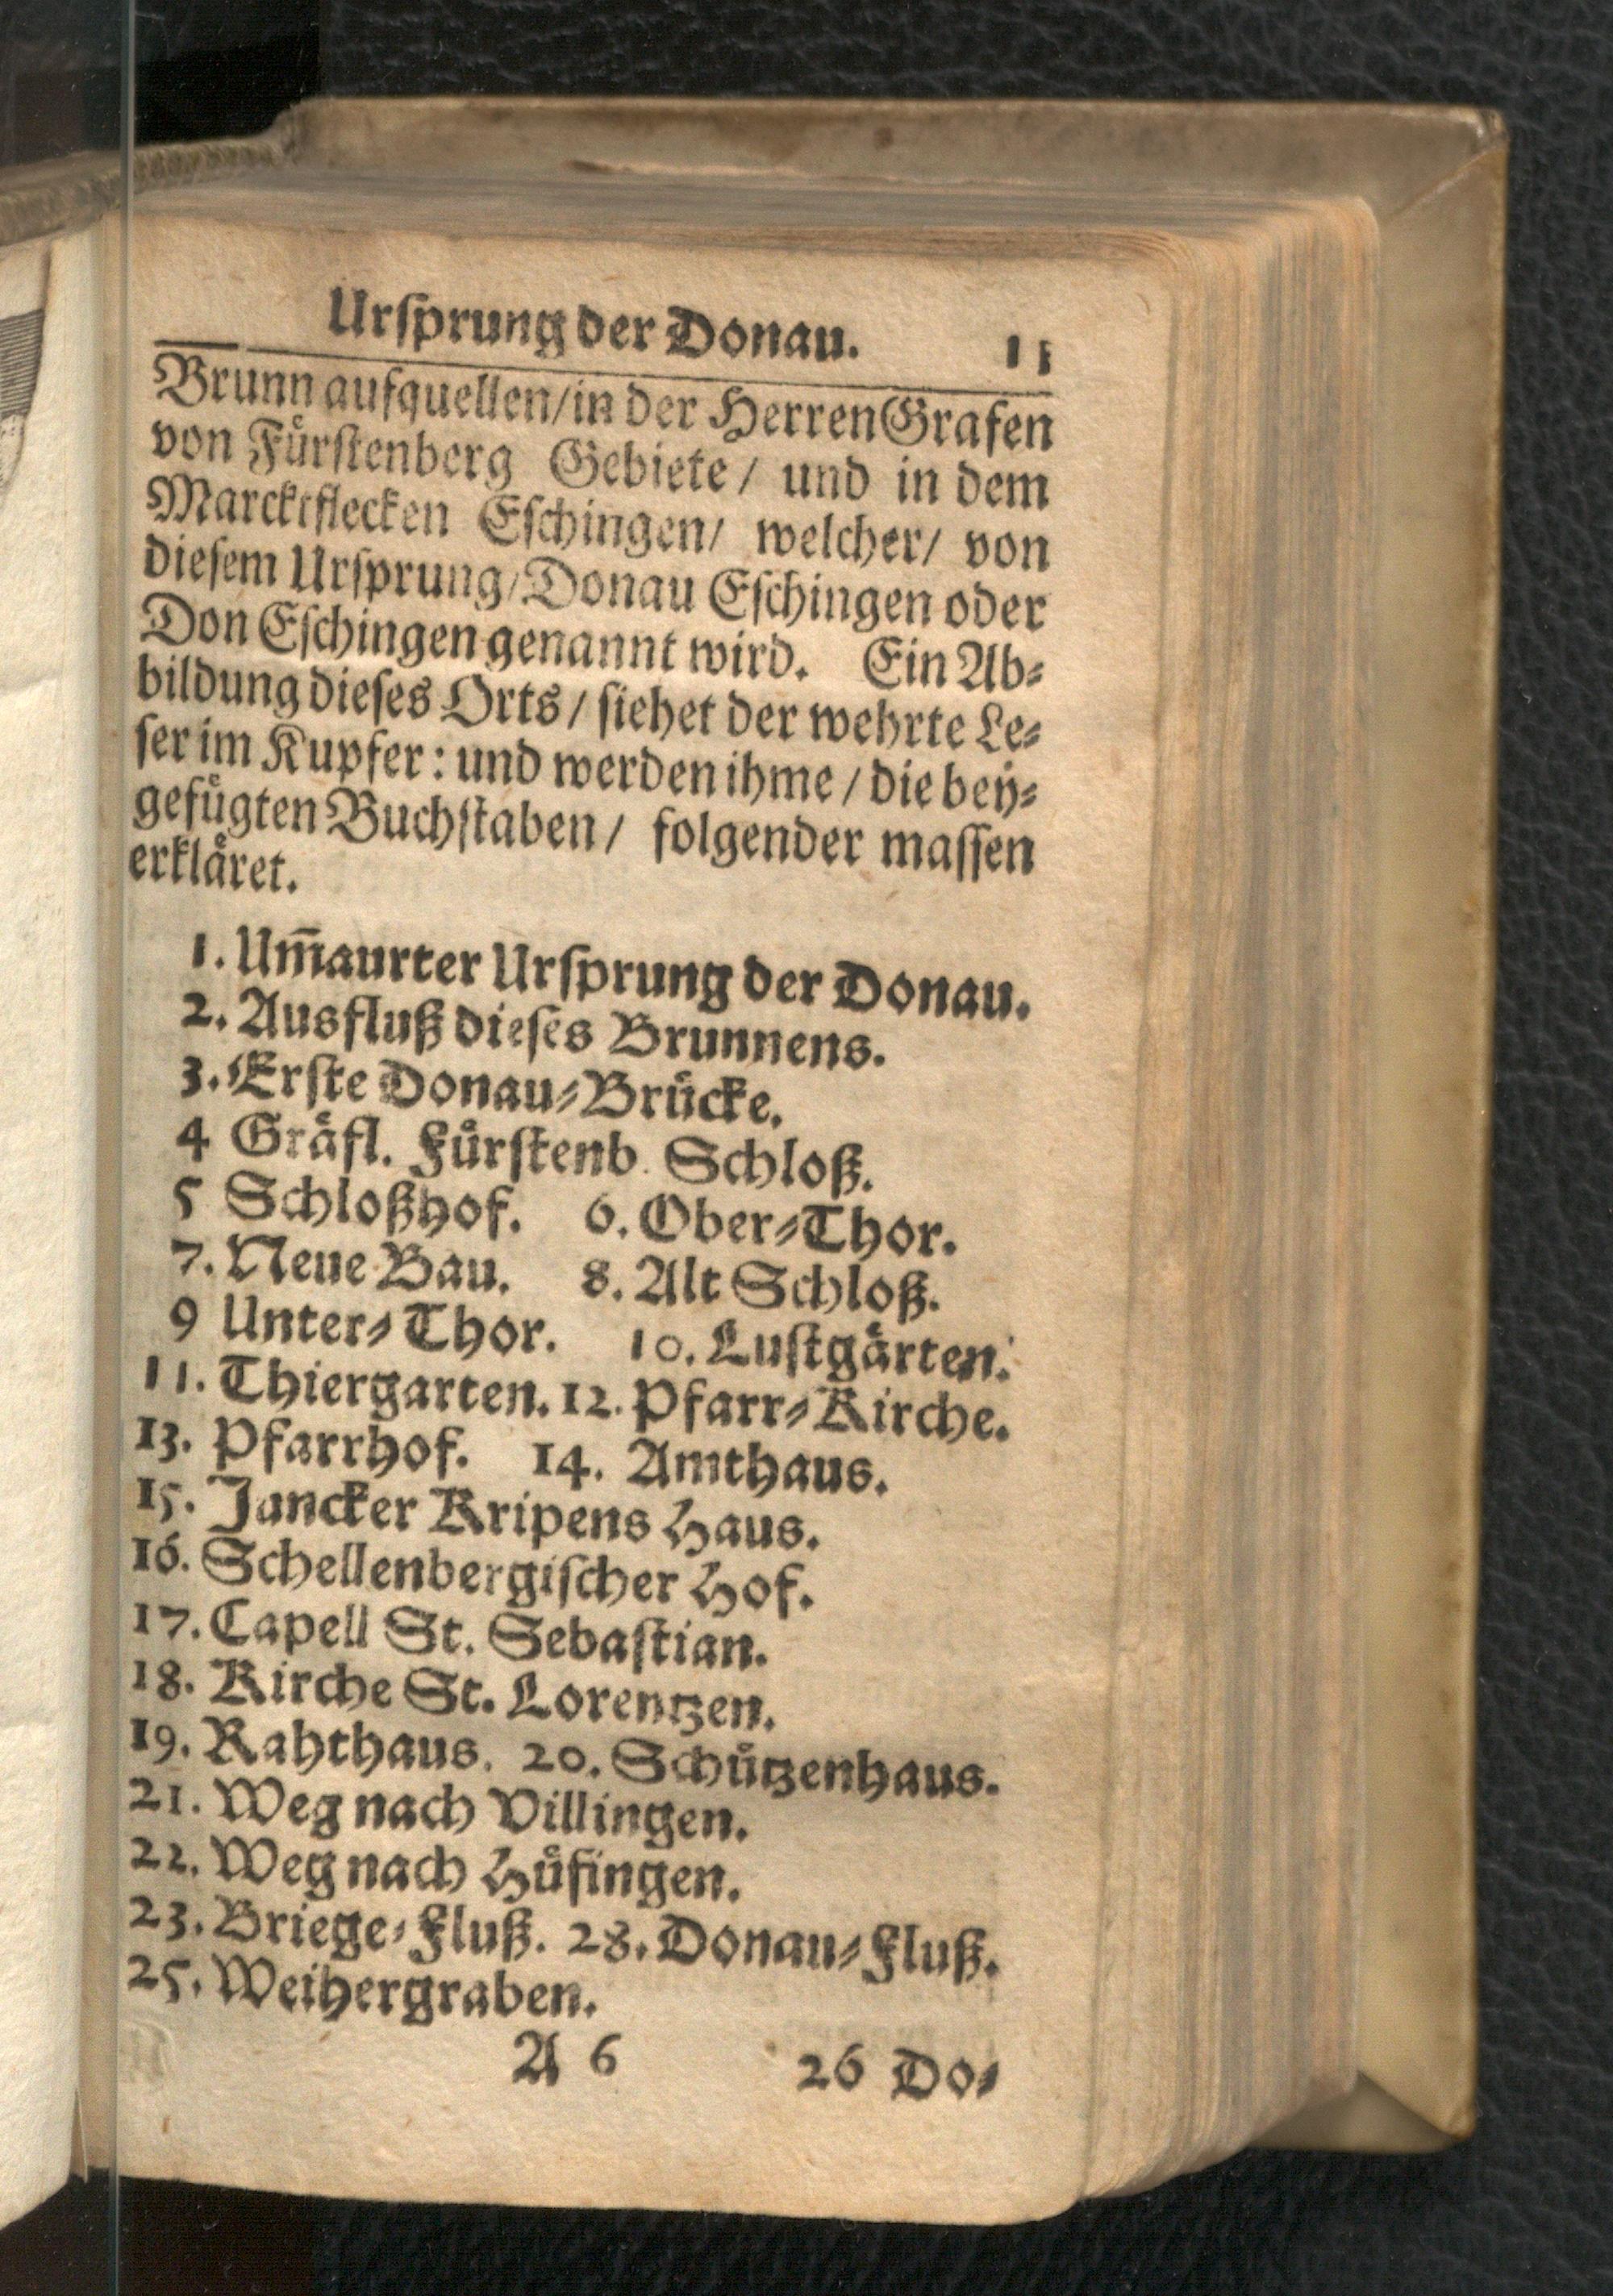 Urſprung der Donau. 11
Brunn aufquellen/in der Herren Grafen
von Fürſtenberg Gebiete/ und in dem
Marcktflecken Eſchingen/ welcher/ von
dieſem Urſprung/Donau Eſchingen oder
Don Eſchingen genannt wird. Ein Ab-
bildung dieſes Orts/ ſiehet der wehrte Le-
ſer im Kupfer: und werden ihme/ die bey-
gefügten Buchſtaben/ folgender maſſen
erkläret.
1. Um̄aurter Urſprung der Donau.
2. Ausfluß dieſes Brunnens.
3. Erſte Donau-Brücke.
4 Gräfl. Fürſtenb. Schloß.
5 Schloßhof. 6. Ober-Thor.
7. Neue Bau. 8. Alt Schloß.
9 Unter-Thor. 10. Luſtgärten.
11. Thiergarten. 12. Pfarr-Kirche.
13. Pfarrhof. 14. Amthaus.
15. Juncker Kripens Haus.
16. Schellenbergiſcher Hof.
17. Capell St. Sebaſtian.
18. Kirche St. Lorentzen.
19. Rahthaus. 20. Schützenhaus.
21. Weg nach Villingen.
22. Weg nach Hüfingen.
23. Briege-Fluß. 28. Donau-Fluß.
25. Weihergraben.
A 6 26 Do-